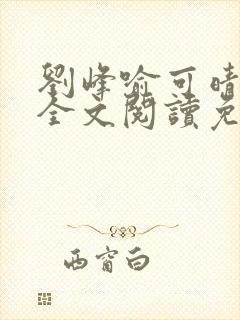 劉峰喻可晴
全文閱讀免
西窗白